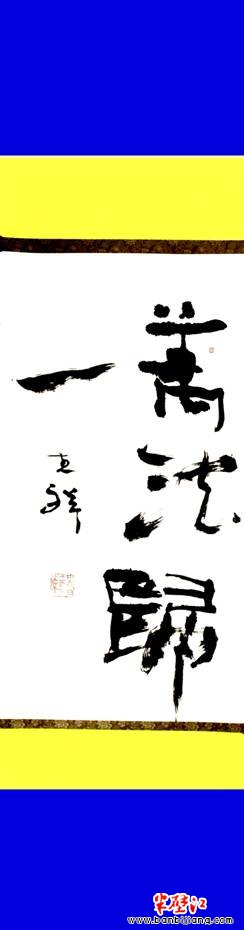 萬法歸
一
半壁江
www.banbijiang.com